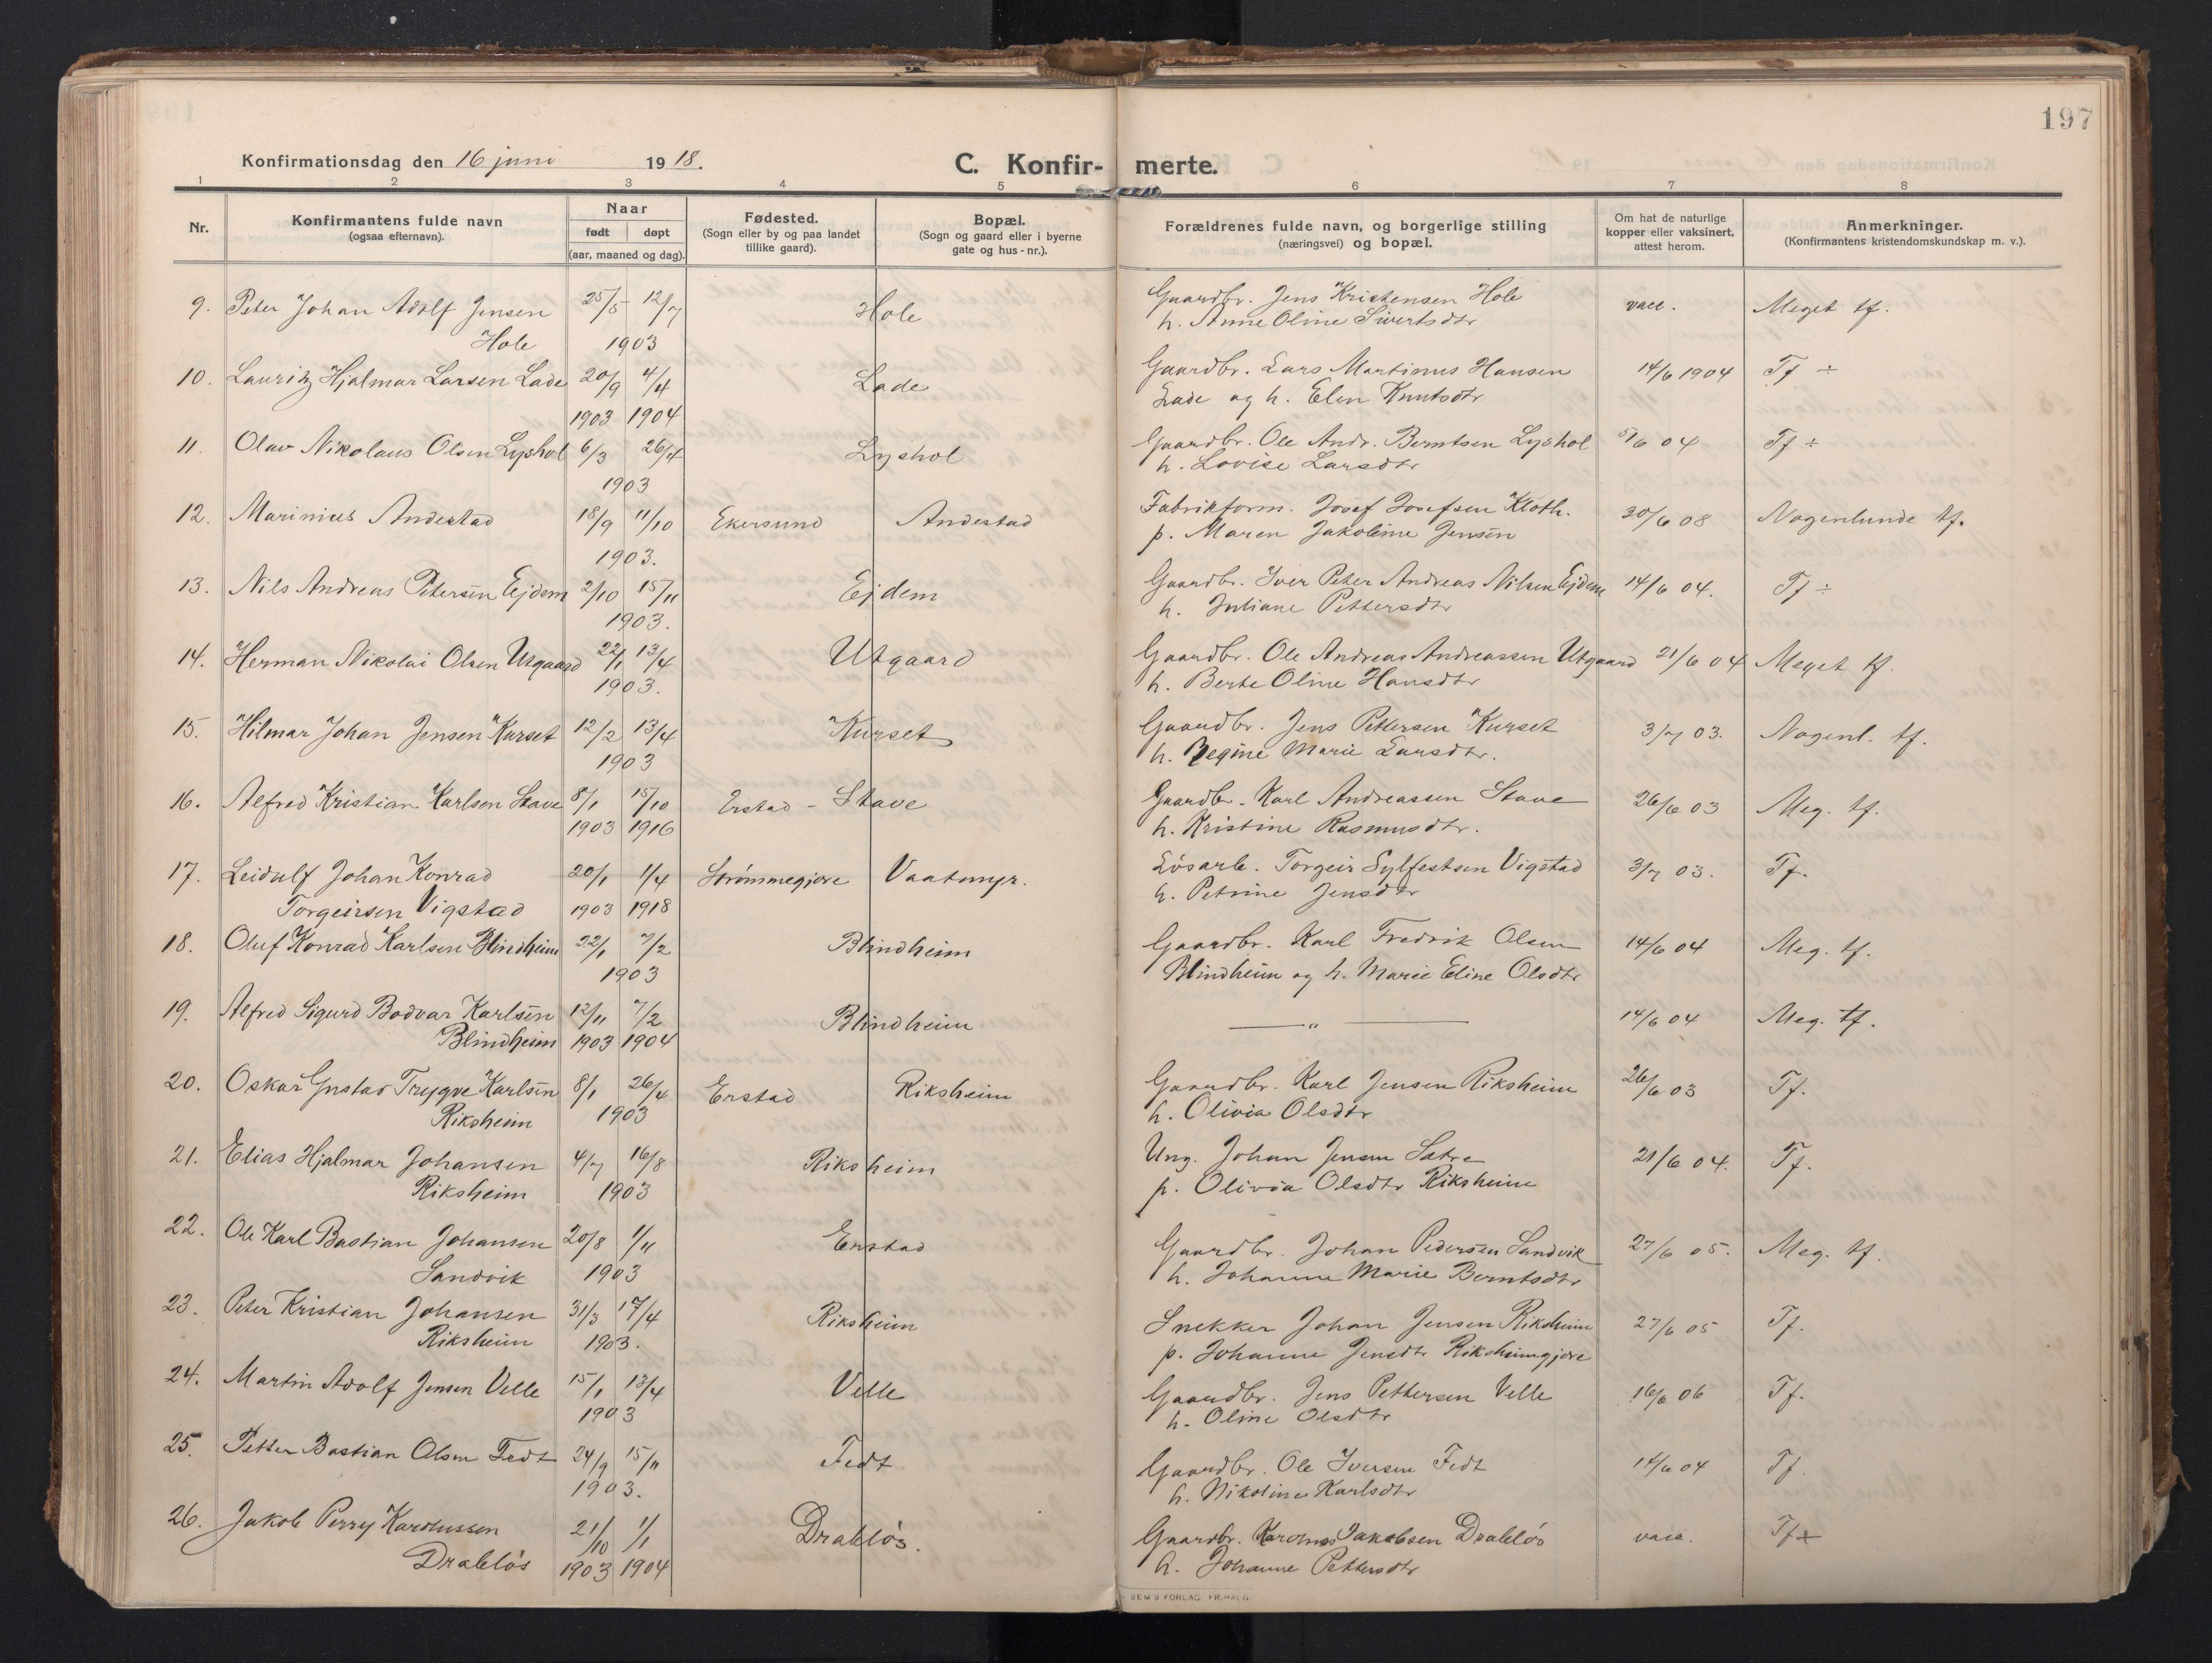 197
Konfirmationsdag den 16 juni 1918.
C. Konfir- merte.
1 2 3 4 5 6 7 8
Nr.
Konfirmantens fulde navn
(ogsaa efternavn).
Naar
født døpt
(aar, maaned og dag).
Fødested.
(Sogn eller by og paa landet
tillike gaard).
Bopæl.
(Sogn og gaard eller i byerne
gate og hus-nr.).
Forældrenes fulde navn, og borgerlige stilling
(næringsvei) og bopæl.
Om hat de naturlige
kopper eller vaksinert,
attest herom.
Anmerkninger.
(Konfirmantens kristendomskundskap m. v.).
9. Peter Johan Adolf Jensen 25/5 12/7 Hole Gaardbr. Jens Kristensen Hole vacc. Meget tf.
Hole 1903 h. Anne Oline Sivertsdtr
10. Lauritz Hjalmar Larsen Lade 20/9 4/4 Lade Gaardbr. Lars Martinus Hansen 14/6 1904 Tf ÷
1903 1904 Lade og h. Elen Knutsdtr
11. Olav Nikolaus Olsen Lyshol 6/3 26/4 Lyshol Gaardbr. Ole Andr. Berntsen Lyshol 5/6 04 Tf ÷
1903 h. Lovise Larsdtr
12. Marinius Andestad 18/9 11/10 Ekersund Andestad Fabrikform. Josef Josefsen Kloth. 30/6 08 Nogenlunde tf.
1903. p. Maren Jakoline Jensen
13. Nils Andreas Petersen Ejdem 2/10 15/11 Ejdem Gaardbr. Iver Peter Andreas Nilsen Ejdem 14/6 04. Tf ÷
1903. h. Juliane Pettersdtr
14. Herman Nikolai Olsen Utgaard 22/1 13/4 Utgaard Gaardbr. Ole Andreas Andreassen Utgaard 21/6 04 Meget tf.
1903. h. Berte Oline Hansdtr
15. Hilmar Johan Jensen Kurset 12/2 13/4 Kurset Gaardbr. Jens Pettersen Kurset 3/7 03. Nogenl. tf.
1903 h. Regine Marie Larsdtr.
16. Alfred Kristian Karlsen Stave 8/1 15/10 Erstad - Stave Gaardbr. Karl Andreassen Stave 26/6 03 Meg. tf.
1903 1916 h. Kristine Rasmusdtr.
17. Leidulf Johan Konrad 20/1 1/4 Strømmegjere Vaatmyr. Løsarb. Torgeir Sylfestsen Vigstad 3/7 03. Tf.
Torgeirsen Vigstad 1903 1918 h. Petrine Jensdtr
18. Oluf Konrad Karlsen Blindheim 22/1 7/2 Blindheim Gaardbr. Karl Fredrik Olsen 14/6 04 Meg. tf.
1903 Blindheim og h. Marie Eline Olsdtr
19. Alfred Sigurd Bodvar Karlsen 12/11 7/2 Blindheim — " — 14/6 04 Meg. tf.
Blindheim 1903 1904
20. Oskar Gustav Trygve Karlsen 8/1 26/4 Erstad Riksheim Gaardbr. Karl Jensen Riksheim 26/6 03 Tf.
Riksheim 1903 h. Olivia Olsdtr
21. Elias Hjalmar Johansen 4/7 16/8 Riksheim Ung. Johan Jensen Satre 21/6 04. Tf.
Riksheim 1903 p. Olivia Olsdtr Riksheim
22. Ole Karl Bastian Johansen 20/8 1/11 Erstad Gaardbr. Johan Pedersen Sandvik 27/6 05. Meg. tf.
Sandvik 1903 h. Johanne Marie Berntsdtr
23. Peter Kristian Johansen 31/3 17/4 Riksheim Snekker Johan Jensen Riksheim 27/6 05 Tf.
Riksheim 1903. p. Johanne Jensdtr Riksheimgjere
24. Martin Adolf Jensen Velle 15/1 13/4 Velle Gaardbr. Jens Pettersen Velle 16/6 06 Tf.
1903 h. Oline Olsdtr
25. Petter Bastian Olsen Fedt 24/9 15/11 Fedt Gaardbr. Ole Iversen Fedt 14/6 04 Tf.
1903. h. Nikoline Karlsdtr
26. Jakob Perry Karolussen 21/10 1/1 Drabløs. Gaardbr. Karolus Jakobsen Drabløs vacc. Tf +
Drabløs 1903 1904 h. Johanne Pettersdtr
SEM'S FORLAG, FR.HALD.